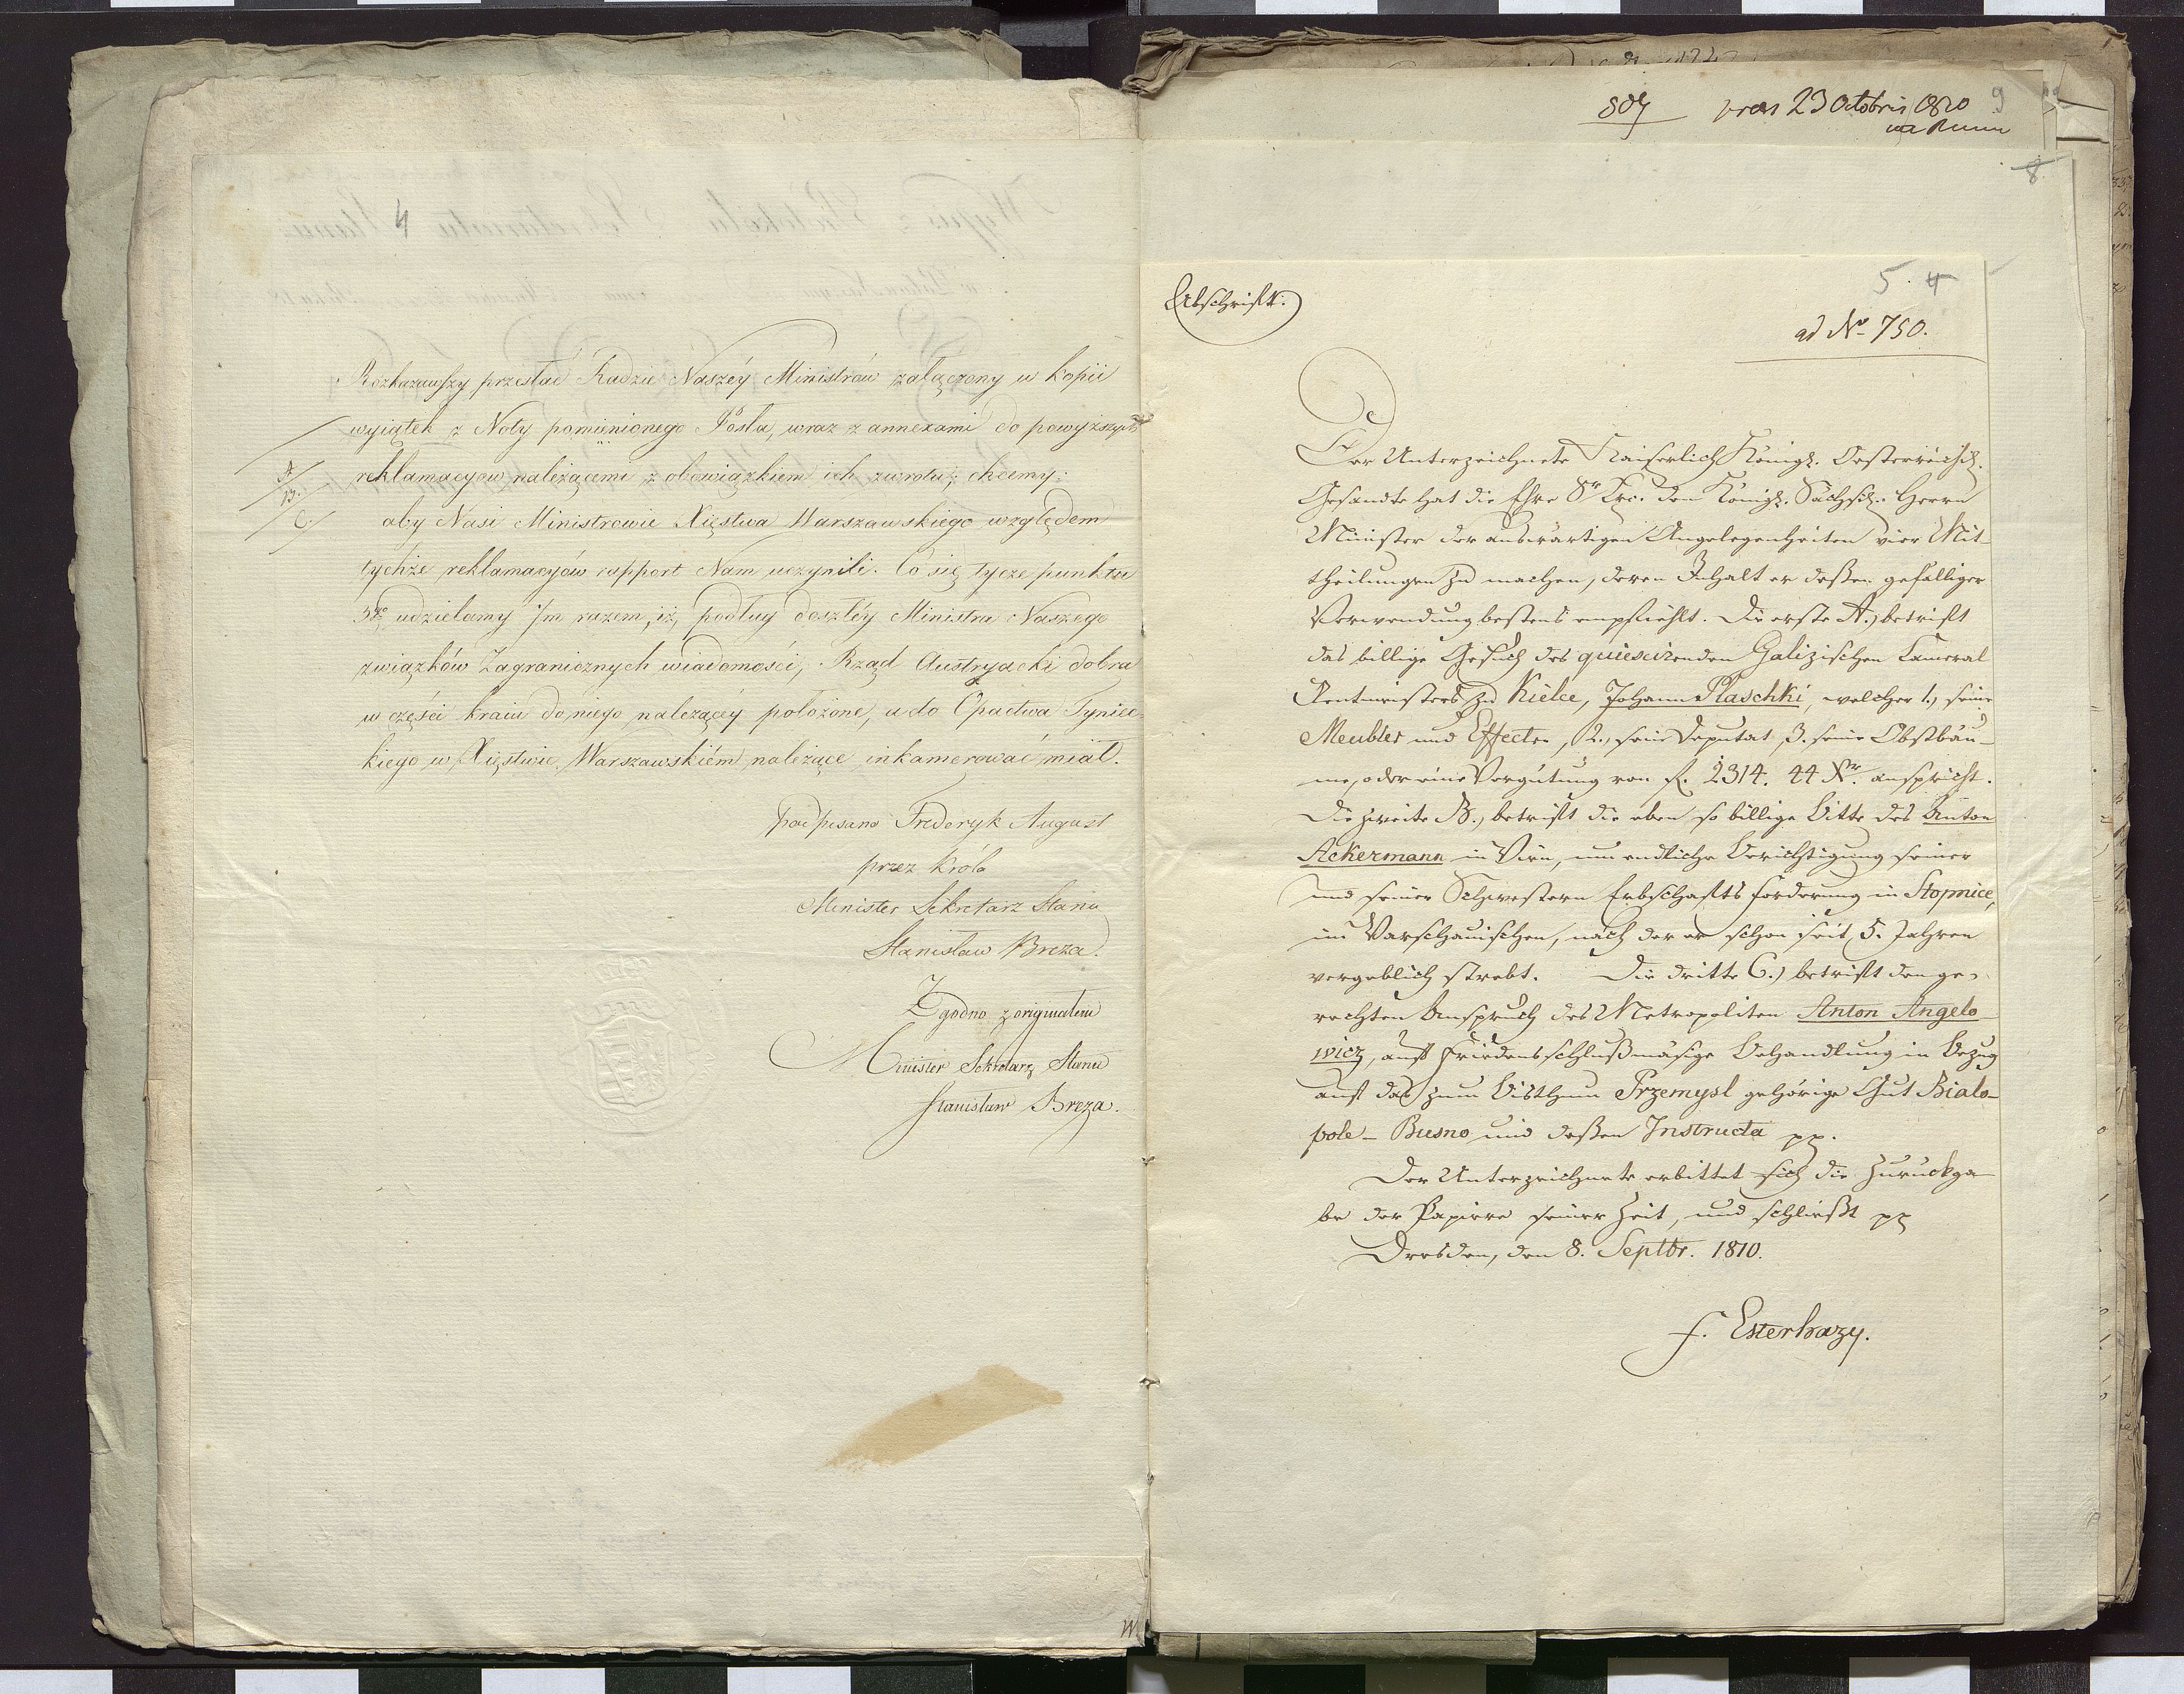 4
Rozkazawszy przesłać Radzie Naszéy Ministrów załączony w kopii
wyiątek z Noty pomienionego Posła, wraz z annexami do powyższych
A/
reklamacyow należącemi z obowiązkiem ich zwrotu, chcemy:
B.
C.
aby Nasi Ministrowie Xięstwa Warszawskiego względem
tychże reklamacyów rapport Nam uczynili. Co się tycze punktu
3go udzielamy Im razem, iż, podług doszłéy Ministra Naszego
związków Zagranicznych wiadomości, Rząd Austryacki dobra
w części kraiu do niego należącéy położone, a do Opactwa Tyniec-
kiego w Xięstwie Warszawskiém należące inkamerować miał.
podpisano Frederyk August
przez Króla
Minister Sekretarz Stanu
Stanisław Breza.
Zgodno z originałem
Minister Sekretarz Stanu
Stanisław Breza.
807 praes 23 Octobris 1810 9
8
Abschrift.
5. 4
ad No 750.
Der Unterzeichnete Kaiserlich Königl. Oesterreichisch.
Gesandte hat die Ehre Sr Exc. dem Königl. Sächsisch. Herrn
Minister der auswärtigen Angelegenheiten vier Mit-
theilungen zu machen, deren Inhalt er deßen gefälliger
Verwendung bestens empfiehlt. Die erste A.) betrift
das billige Gesuch des quiescirenden Galizischen Kameral
Rentmeisters zu Kielce, Johann Plaschki, welcher 1., seine
Meubles und Effecten, 2., sein Deputat, 3. seine Obstbäu-
me, oder eine Vergütung von f. 2314. 44 Xr. anspricht.
Die zweite B., betrift die eben so billige Bitte des Anton
Ackermann in Wien, um endliche Berichtigung seiner
und seiner Schwestern Erbschafts forderung in Stopnice,
im Warschauischen, nach der er schon seit 5. Jahren
vergeblich strebt. Die dritte C.) betrift den ge-
rechten Anspruch des Metropoliten Anton Angelo-
wicz, auf Friedensschlußmäsige Behandlung in Bezug
auf das zum Bisthum Przemysl gehörige Gut Bialo-
pole - Busno und deßen Instructa pp.
Der Unterzeichnete erbittet sich die Zurückga-
be der Papiere seiner Zeit, und schließt pp
Dresden, den 8. Septbr. 1810.
f. Esterhazy.